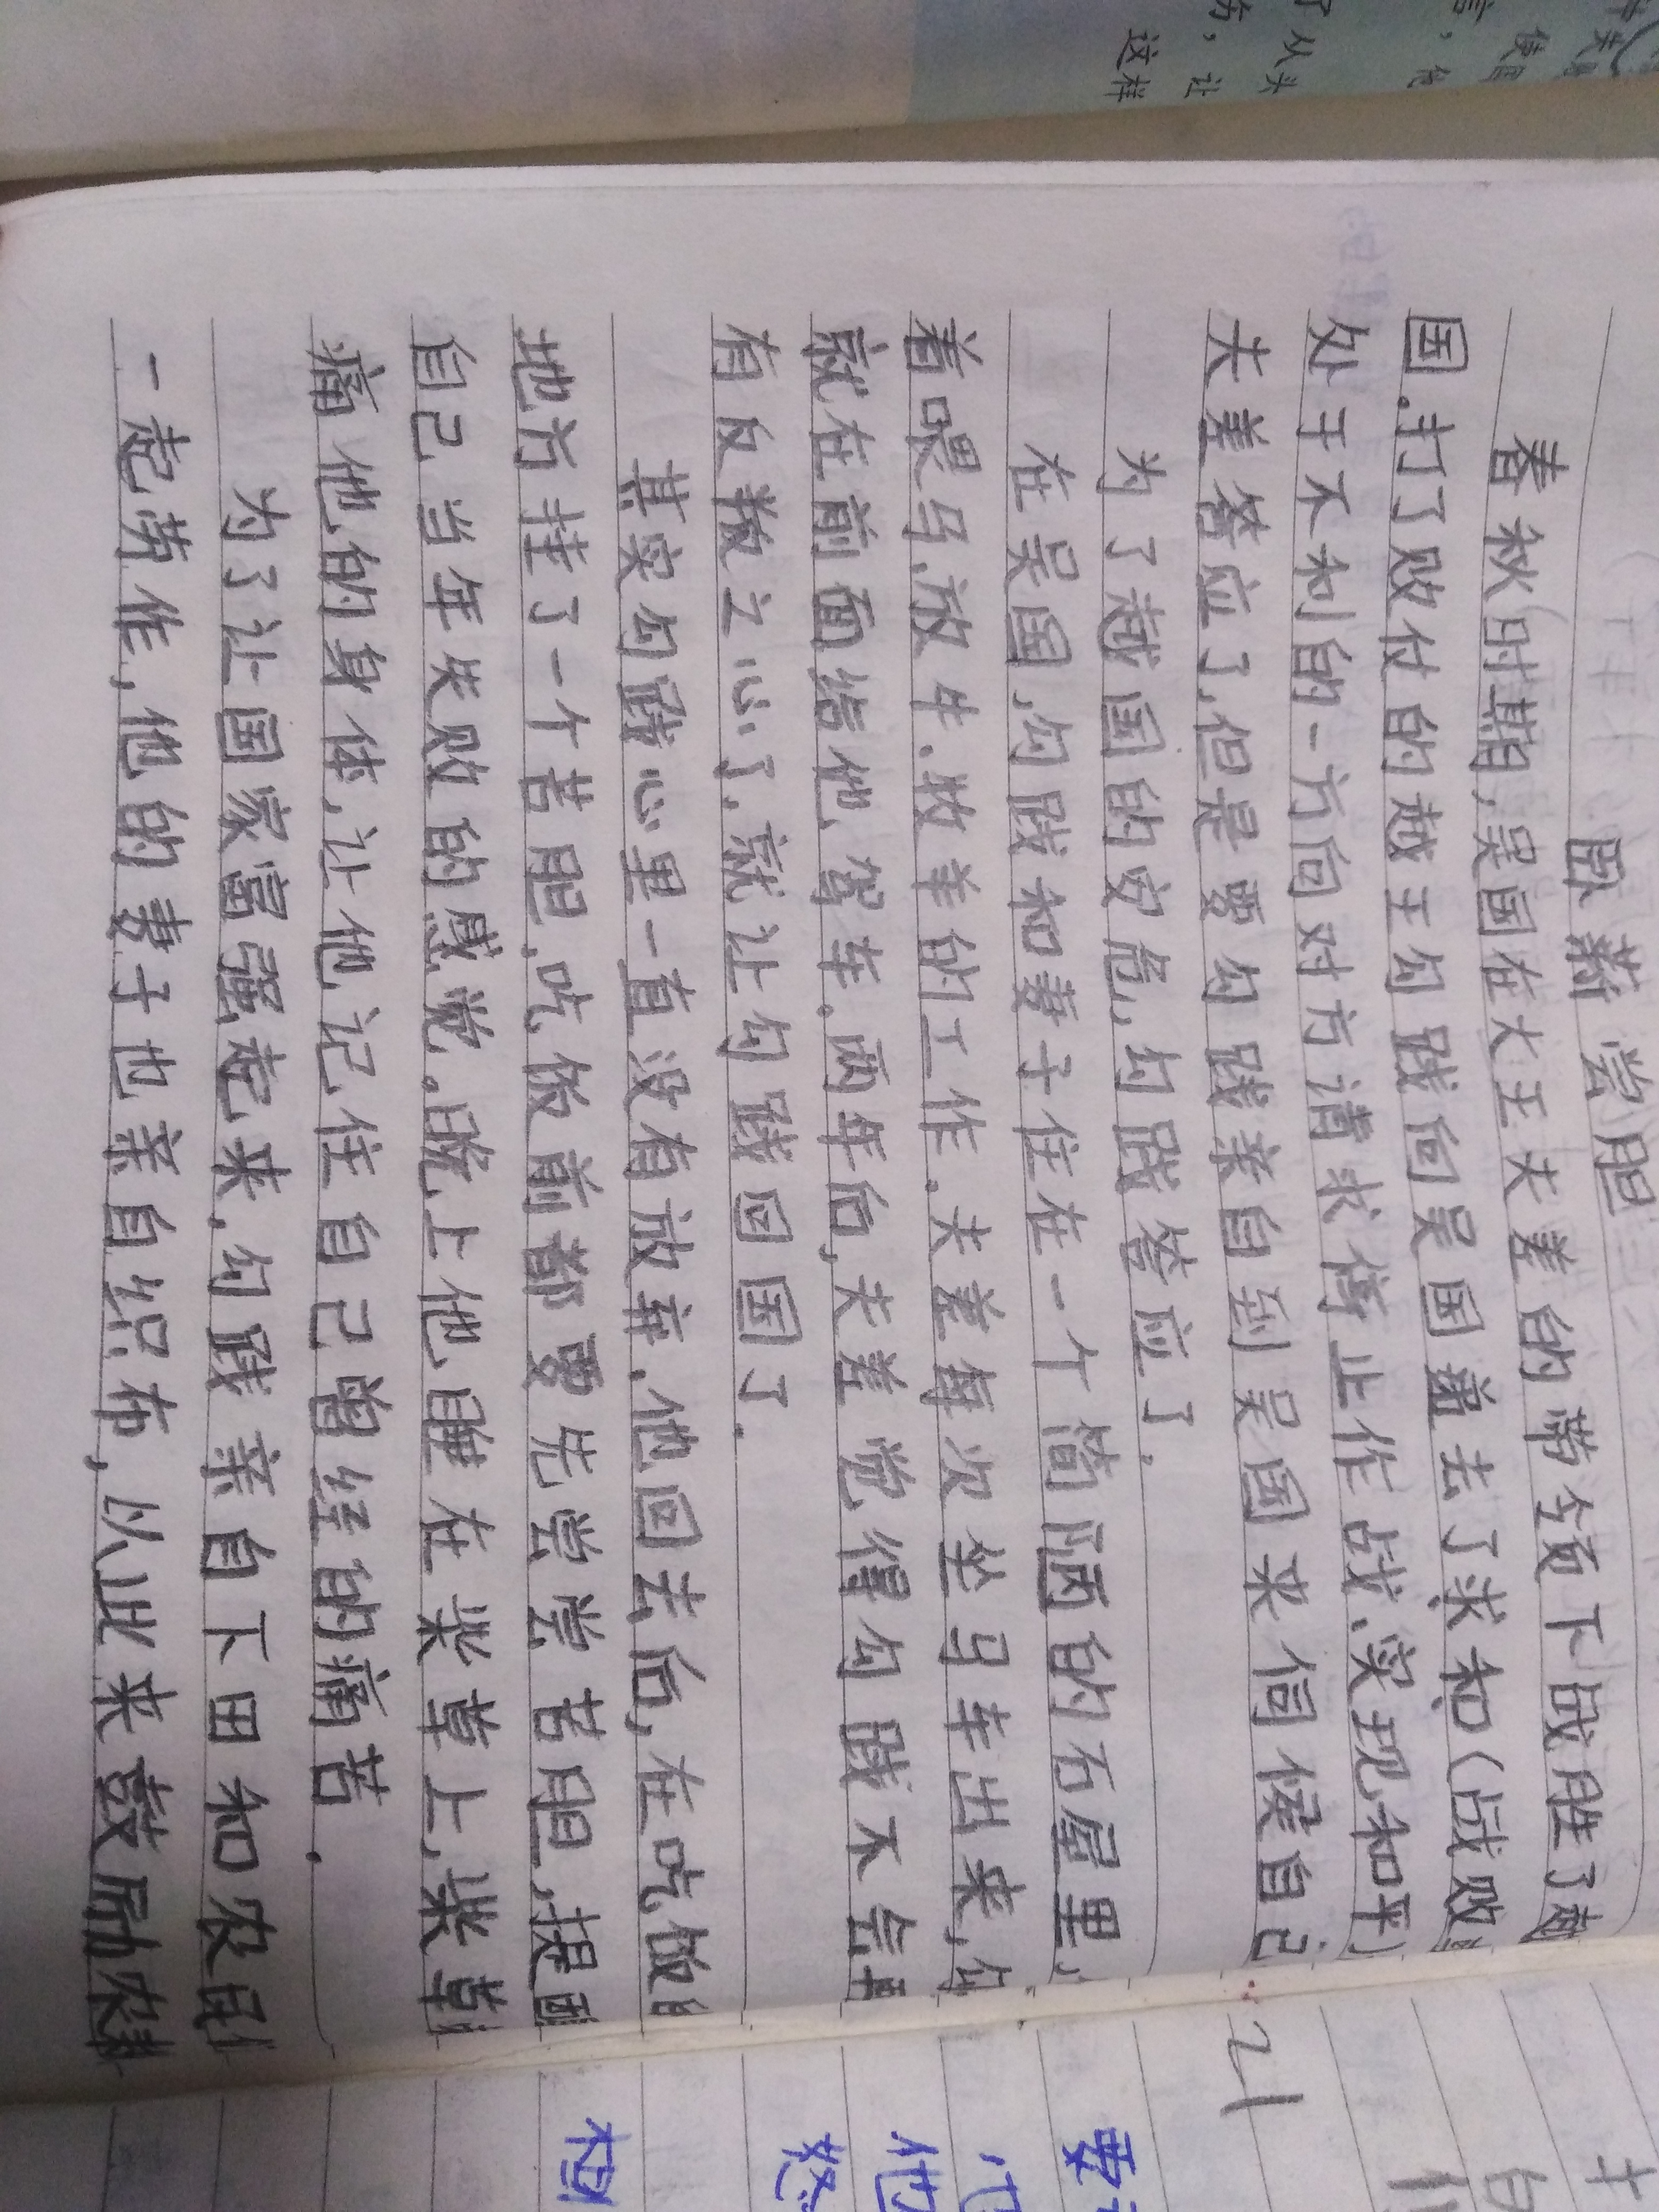 卧薪尝胆
春秋时期,吴国在大王夫差的带领下战胜了越
国.打了败仗的越王勾践向吴国递去了求和(战败
处于不利的一方向对方请求停止作战、实现和平)
夫差答应了,但是要勾践亲自到吴国来伺候自己
为了越国的安危,勾践答应了.
在吴国,勾践和妻子住在一个简陋的石屋里,
着喂马、放牛、牧羊的工作.夫差每次坐马车出来,勾
就在前面给他驾车.两年后,夫差觉得勾践不会再
有反叛之心了,就让勾践回国了.
其实勾践心里一直没有放弃.他回去后,在吃饭的
地方挂了一个苦胆,吃饭前都要先尝尝苦胆,提醒
自己当年失败的感觉.晚上他睡在柴草上,柴草
痛他的身体,让他记住自己曾经的痛苦.
为了让国家富强起来,勾践亲自下田和农民
一起劳作,他的妻子也亲自织布,以此来鼓励农耕
21
这样
伤,让
了从头
要
他
怒